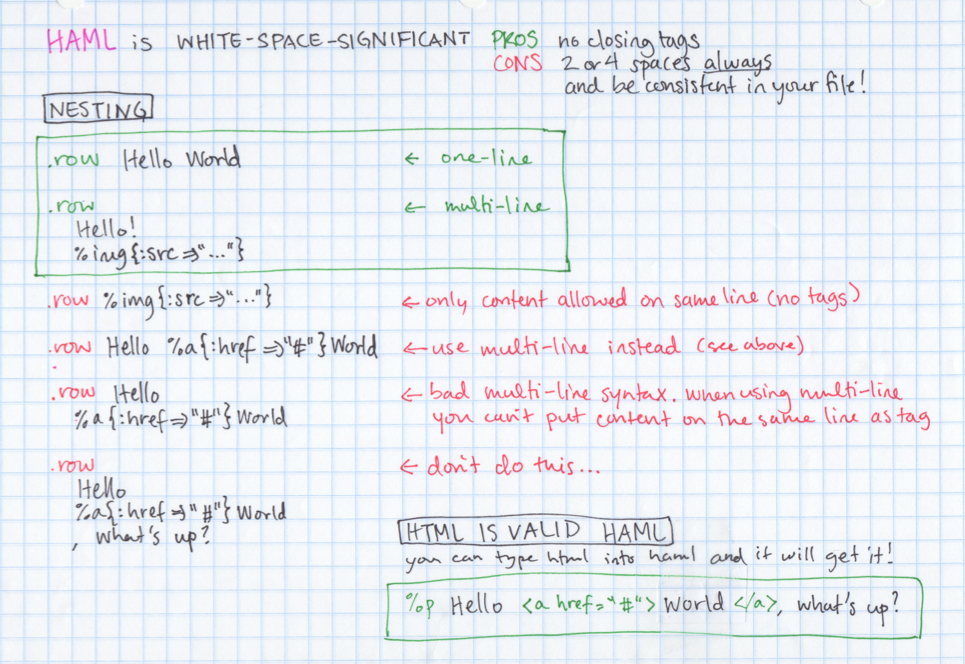 HAML is WHITE-SPACE-SIGNIFICANT PROS no closing tags
CONS 2 or 4 spaces always
and be consistent in your file!
NESTING
.row Hello World ← one-line
.row ← multi-line
Hello!
%img{:src=>"..."}
.row %img{:src=>"..."} ← only content allowed on same line (no tags)
.row Hello %a{:href=>"#"}World ← use multi-line instead (see above)
.row Hello ← bad multi-line syntax. when using multi-line
%a{:href=>"#"}World you can't put content on the same line as tag
.row ← don't do this...
Hello
%a{:href=>"#"}World
, what's up?
HTML IS VALID HAML
you can type html into haml and it will get it!
%p Hello <a href="#"> World </a>, what's up?